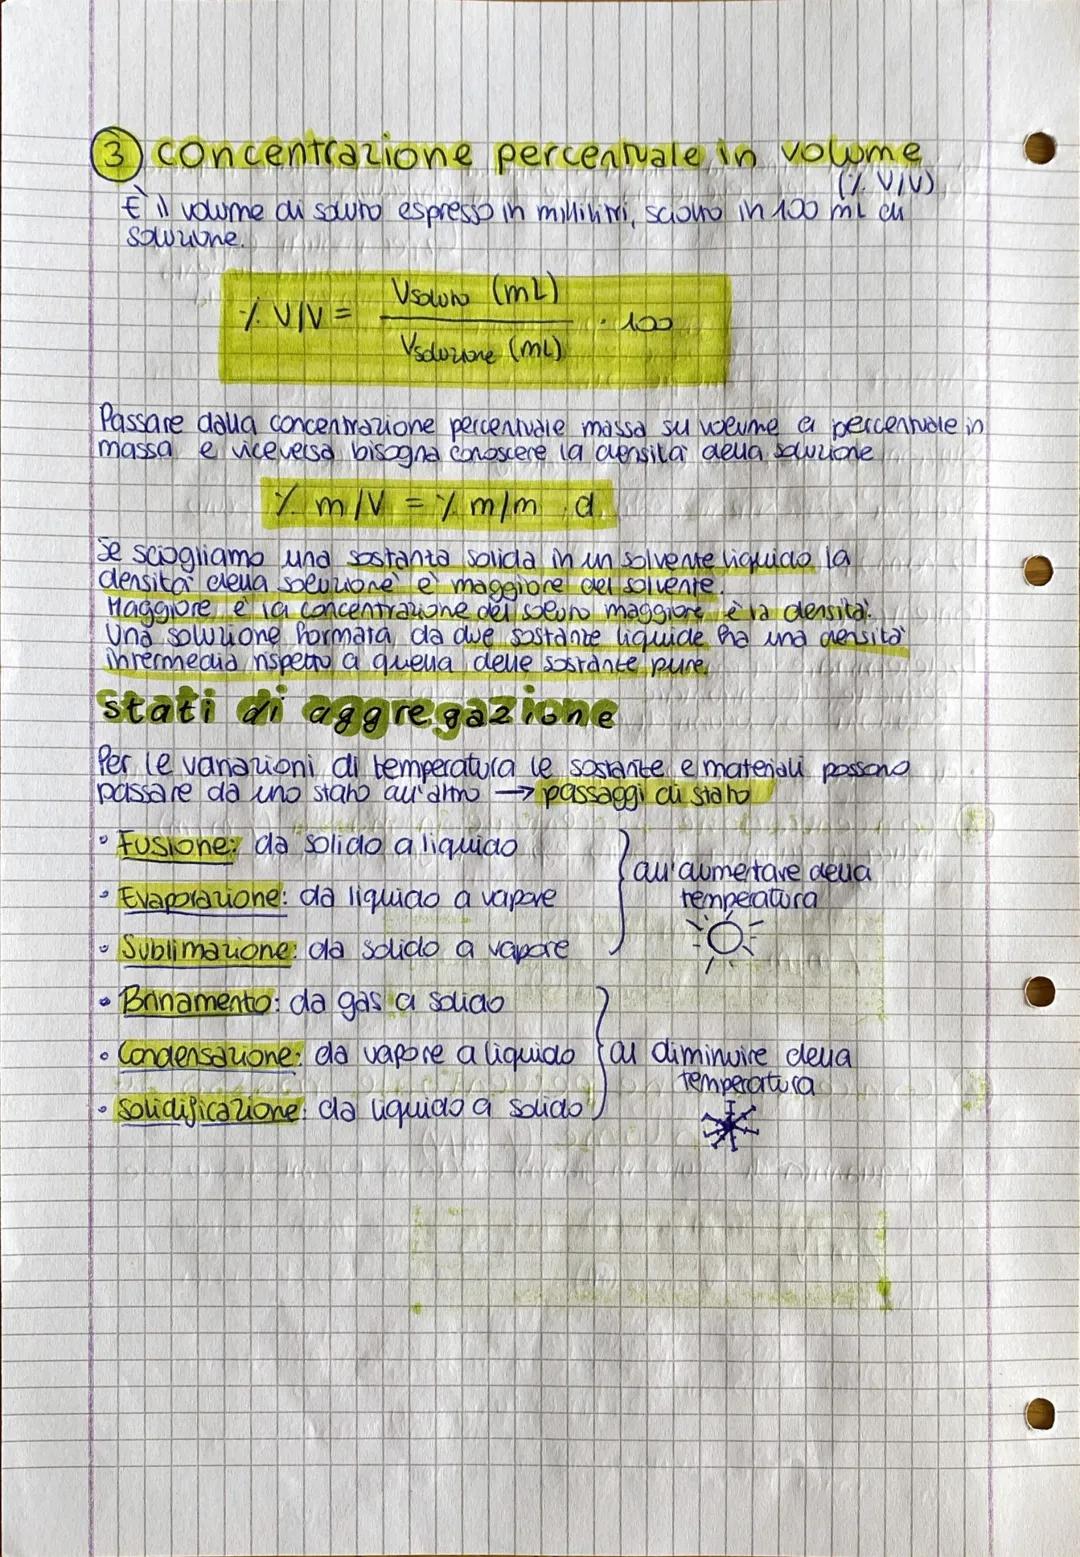 3 concentrazione percentuale in volume
(% V/V)
È il volume di soluto espresso in millilitri, sciolto in 100 mL di
soluzione.
% V/V = Vsoluto (mL) / Vsoluzione (mL) · 100
Passare dalla concentrazione percentuale massa su volume a percentuale in
massa e viceversa bisogna conoscere la densità della soluzione
% m/V = % m/m · d
Se sciogliamo una sostanza solida in un solvente liquido la
densità della soluzione è maggiore del solvente.
Maggiore è la concentrazione del soluto maggiore è la densità.
Una soluzione formata da due sostanze liquide ha una densità
intermedia rispetto a quella delle sostanze pure.
stati di aggregazione
Per le variazioni di temperatura le sostanze e materiali possono
passare da uno stato all'altro → passaggi di stato
• Fusione: da solido a liquido
• Evaporazione: da liquido a vapore
• Sublimazione: da solido a vapore
all'aumetare della
temperatura
• Brinamento: da gas a solido
• Condensazione: da vapore a liquido
• solidificazione: da liquido a solido
al diminuire della
temperatura